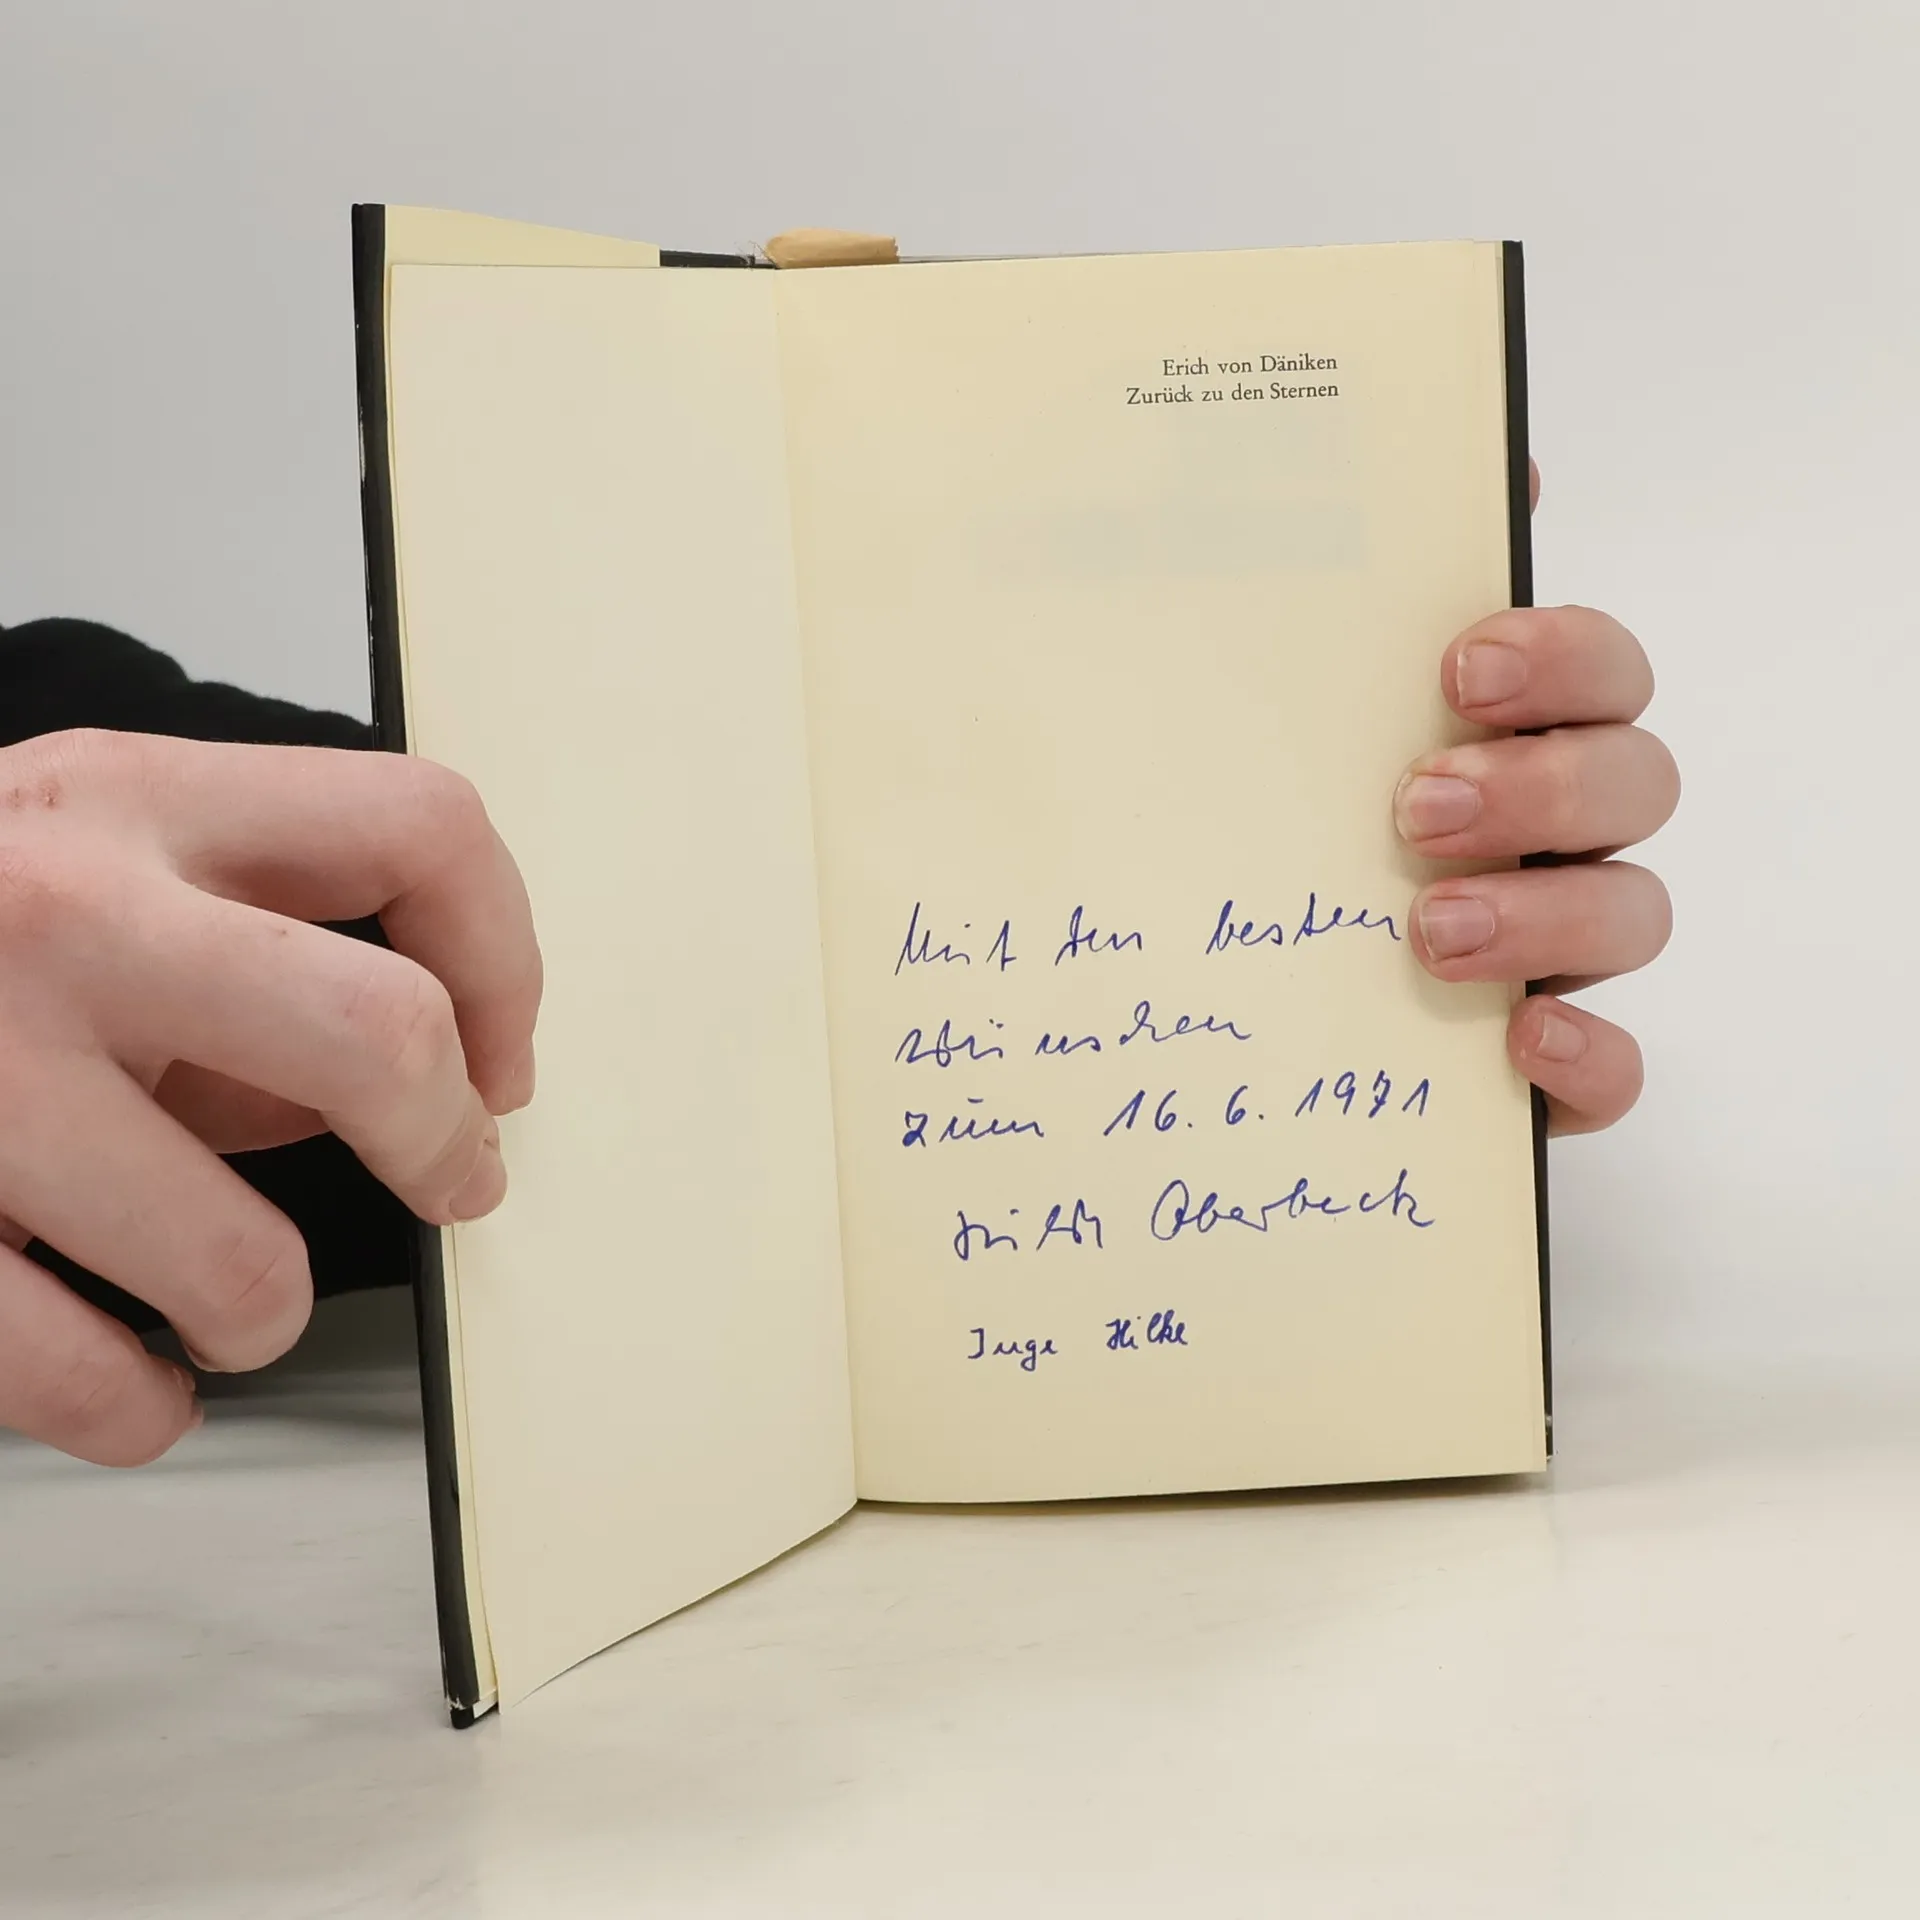 Erich von Däniken
Zurück zu den Sternen
Mit den besten
Wünschen
zum 16. 6. 1971
Oberbeck
Inge Hilke